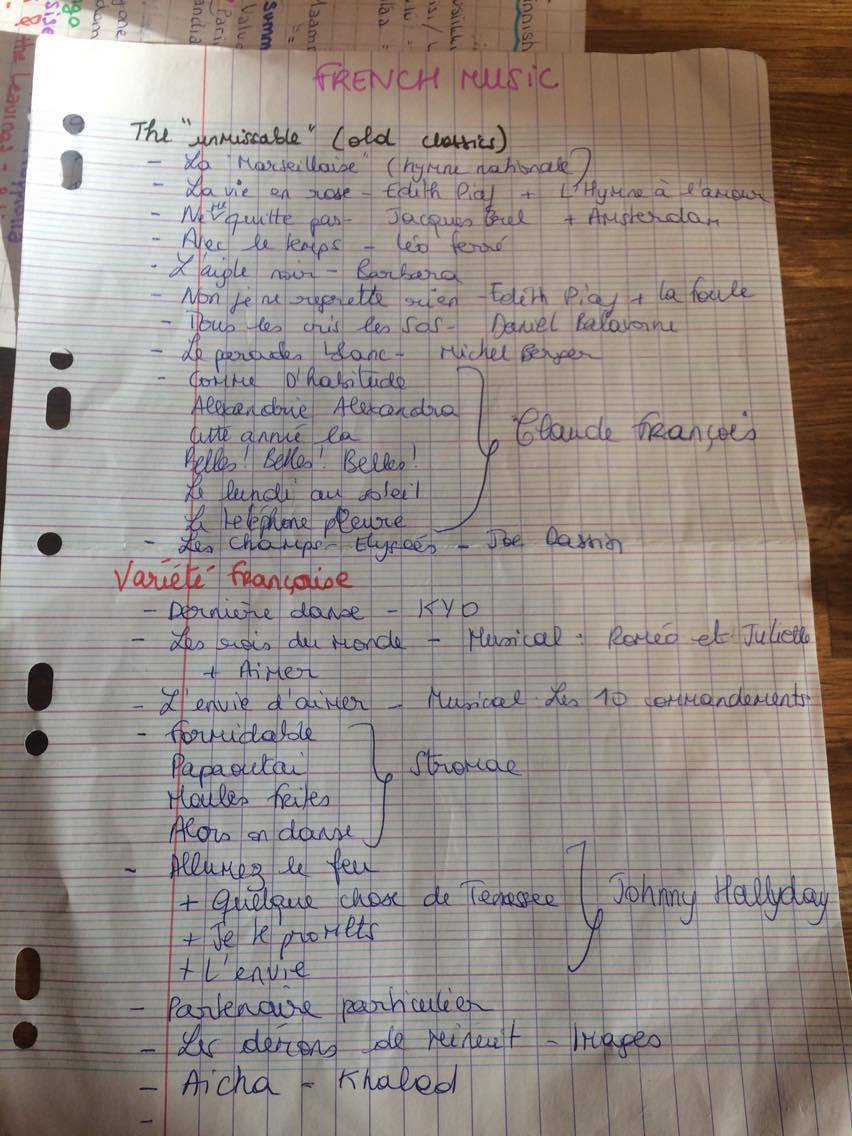 FRENCH MUSIC
The "unmissable" (old classics)
- La "Marseillaise" (hymne nationale)
- La vie en rose - Edith Piaf + L'Hymne à l'amour
- Ne me quitte pas - Jacques Brel + Amsterdam
- Avec le temps - Léo Ferré
- L'aigle noir - Barbara
- Non je ne regrette rien - Edith Piaf + la foule
- Tous les cris les SOS - Daniel Balavoine
- Le paradis blanc - Michel Berger
- Comme D'habitude
Alexandrie Alexandra
Cette année là
Belles! Belles! Belles!
Le lundi au soleil
Le téléphone pleure
Claude François
- Les Champs-Elysées - Joe Dassin
Variété française
- Dernière danse - KYO
- Les rois du monde - Musical: Roméo et Juliette
+ Aimer
- L'envie d'aimer - Musical Les 10 commandements
- Formidable
Papaoutai
Moules frites
Alors on danse
Stromae
- Allumez le feu
+ Quelque chose de Tenessee
+ Je te promets
+ L'envie
Johnny Hallyday
- Partenaire particulier
- Les démons de minuit - Images
- Aicha - Khaled
-